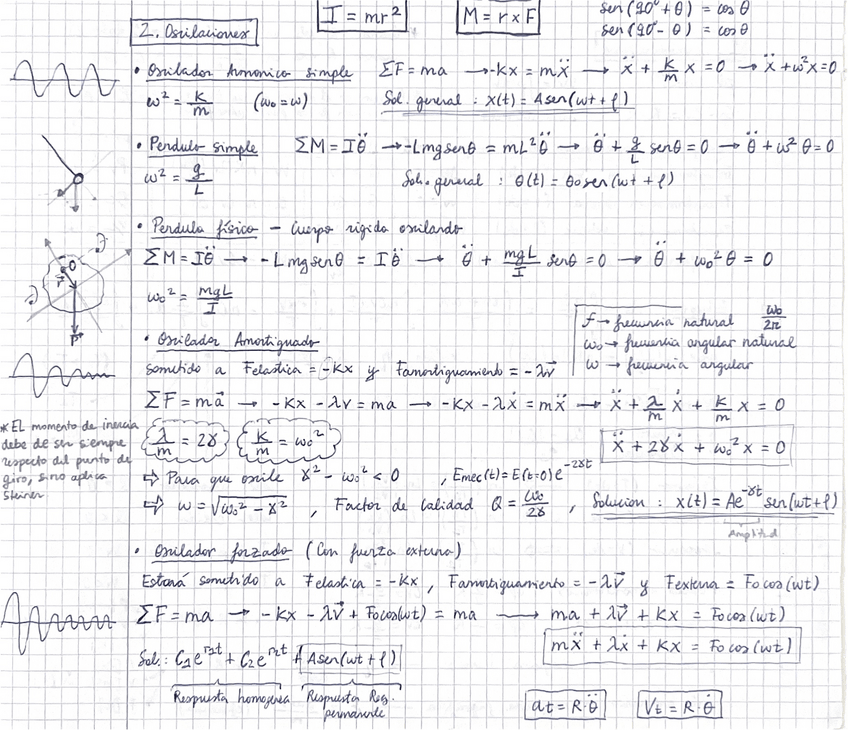 I = mr²
M = r x F
sen(90° + θ) = cos θ
sen(90° - θ) = cos θ
2. Oscilaciones
• Oscilador Armonico simple ΣF = ma → -Kx = mẍ → ẍ + K/m x = 0 → ẍ + ω²x = 0
ω² = K/m (ω₀ = ω) Sol. general : x(t) = A sen(ωt + φ)
• Pendulo simple ΣM = Iθ̈ → -Lmg senθ = mL²θ̈ → θ̈ + g/L senθ = 0 → θ̈ + ω² θ = 0
ω² = g/L Sol. general : θ(t) = θ₀ sen(ωt + φ)
• Pendulo físico – Cuerpo rigido oscilando
ΣM = Iθ̈ → -Lmg senθ = Iθ̈ → θ̈ + mgL/I senθ = 0 → θ̈ + ω₀² θ = 0
ω₀² = mgL/I
O
r
P
f → frecuencia natural ω₀/2π
ω₀ → frecuencia angular natural
ω → frecuencia angular
• Oscilador Amortiguado
sometido a Felastica = -Kx y Famortiguamiento = -λv⃗
ΣF = ma⃗ → -Kx - λv = ma → -Kx - λẋ = mẍ → ẍ + λ/m ẋ + K/m x = 0
λ/m = 2γ K/m = ω₀² ẍ + 2γẋ + ω₀² x = 0
* EL momento de inercia
debe de ser siempre
respecto del punto de
giro, sino aplica
Steiner
⇨ Para que oscile γ² - ω₀² < 0 , Emec(t) = E(t=0) e^-2γt
⇨ ω = √(ω₀² - γ²) , Factor de calidad Q = ω₀/2γ , Solucion : x(t) = Ae^-γt sen(ωt + φ)
Amplitud
• Oscilador forzado (Con fuerza externa)
Estará sometido a Felastica = -Kx , Famortiguamiento = -λv⃗ y Fexterna = F₀ cos(ωt)
ΣF = ma → -Kx - λv⃗ + F₀cos(ωt) = ma → ma + λv⃗ + Kx = F₀ cos(ωt)
mẍ + λẋ + Kx = F₀ cos(ωt)
Sol.: C₁e^r₁t + C₂e^r₂t + A sen(ωt + φ)
Respuesta homogenea Respuesta Reg.
permanente
at = R·θ̈ Vt = R·θ̇